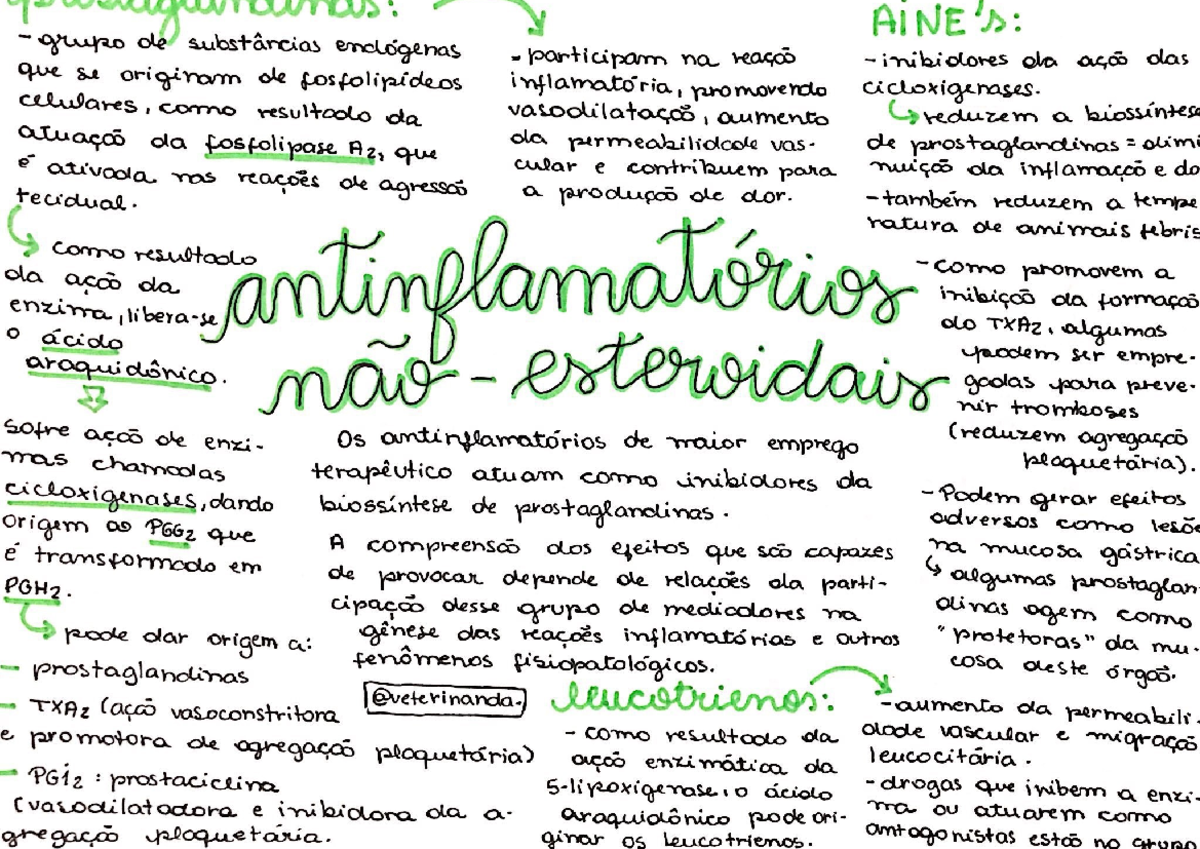 prostaglandinas:
- grupo de substâncias endógenas
que se originam de fosfolipídeos
celulares, como resultado da
atuação da fosfolipase A2, que
é ativada nas reações de agressão
tecidual.
como resultado
da ação da
enzima, libera-se
o ácido
araquidônico.
sofre ação de enzi-
mas chamadas
cicloxigenases, dando
origem ao PGG2 que
é transformado em
PGH2.
pode dar origem a:
- prostaglandinas
- TXA2 (ação vasoconstritora
e promotora de agregação plaquetária)
- PGI2 : prostaciclina
(vasodilatadora e inibidora da a-
gregação plaquetária.
- participam na reação
inflamatória, promovendo
vasodilatação, aumento
da permeabilidade vas-
cular e contribuem para
a produção de dor.
antinflamatórios
não - esteroidais
Os antinflamatórios de maior emprego
terapêutico atuam como inibidores da
biossíntese de prostaglandinas.
A compreensão dos efeitos que são capazes
de provocar depende de relações da parti-
cipação desse grupo de mediadores na
gênese das reações inflamatórias e outros
fenômenos fisiopatológicos.
@veterinanda.
leucotrienos:
- como resultado da
ação enzimática da
5-lipoxigenase, o ácido
araquidônico pode ori-
ginar os leucotrienos.
- aumento da permeabili-
dade vascular e migração
leucocitária.
- drogas que inibem a enzi-
ma ou atuarem como
antagonistas estão no grupo
AINE's:
- inibidores da ação das
cicloxigenases.
reduzem a biossíntese
de prostaglandinas = dimi
nuição da inflamação e do
- também reduzem a tempe
ratura de animais febris
- como promovem a
inibição da formação
do TXA2, algumas
podem ser empre-
gadas para preve-
nir tromboses
(reduzem agregação
plaquetária).
- Podem gerar efeitos
adversos como lesõe
na mucosa gástrica
algumas prostaglan-
dinas agem como
"protetoras" da mu-
cosa deste órgão.